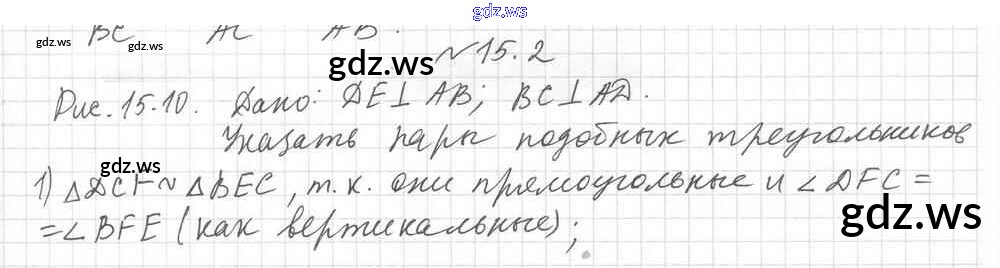 gdz.ws
BC AC AB.
gdz.ws
gdz.ws
gdz.ws
№15.2
Рис. 15.10. Дано: DE⊥AB; BC⊥AD.
Указать пары подобных треугольников
gdz.ws
1) △DCF ~ △BEC, т.к. они прямоугольные и ∠DFC =
gdz.ws
= ∠BFE (как вертикальные);